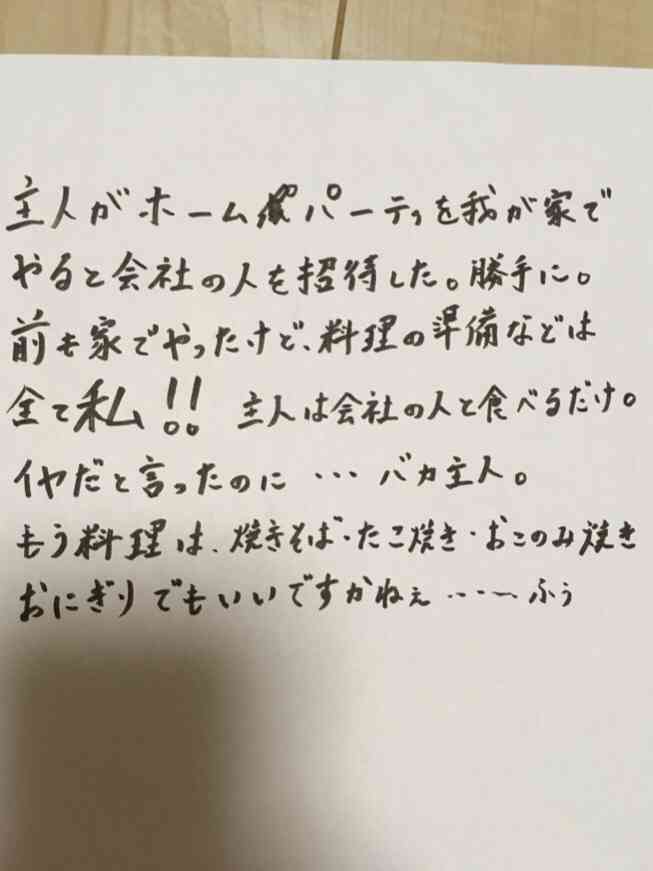 主人がホームパーティを我が家で
やると会社の人を招待した。勝手に。
前も家でやったけど、料理の準備などは
全て私!! 主人は会社の人と食べるだけ。
イヤだと言ったのに… バカ主人。
もう料理は、焼きそば・たこ焼き・おこのみ焼き
おにぎりでもいいですかねぇ……ふぅ